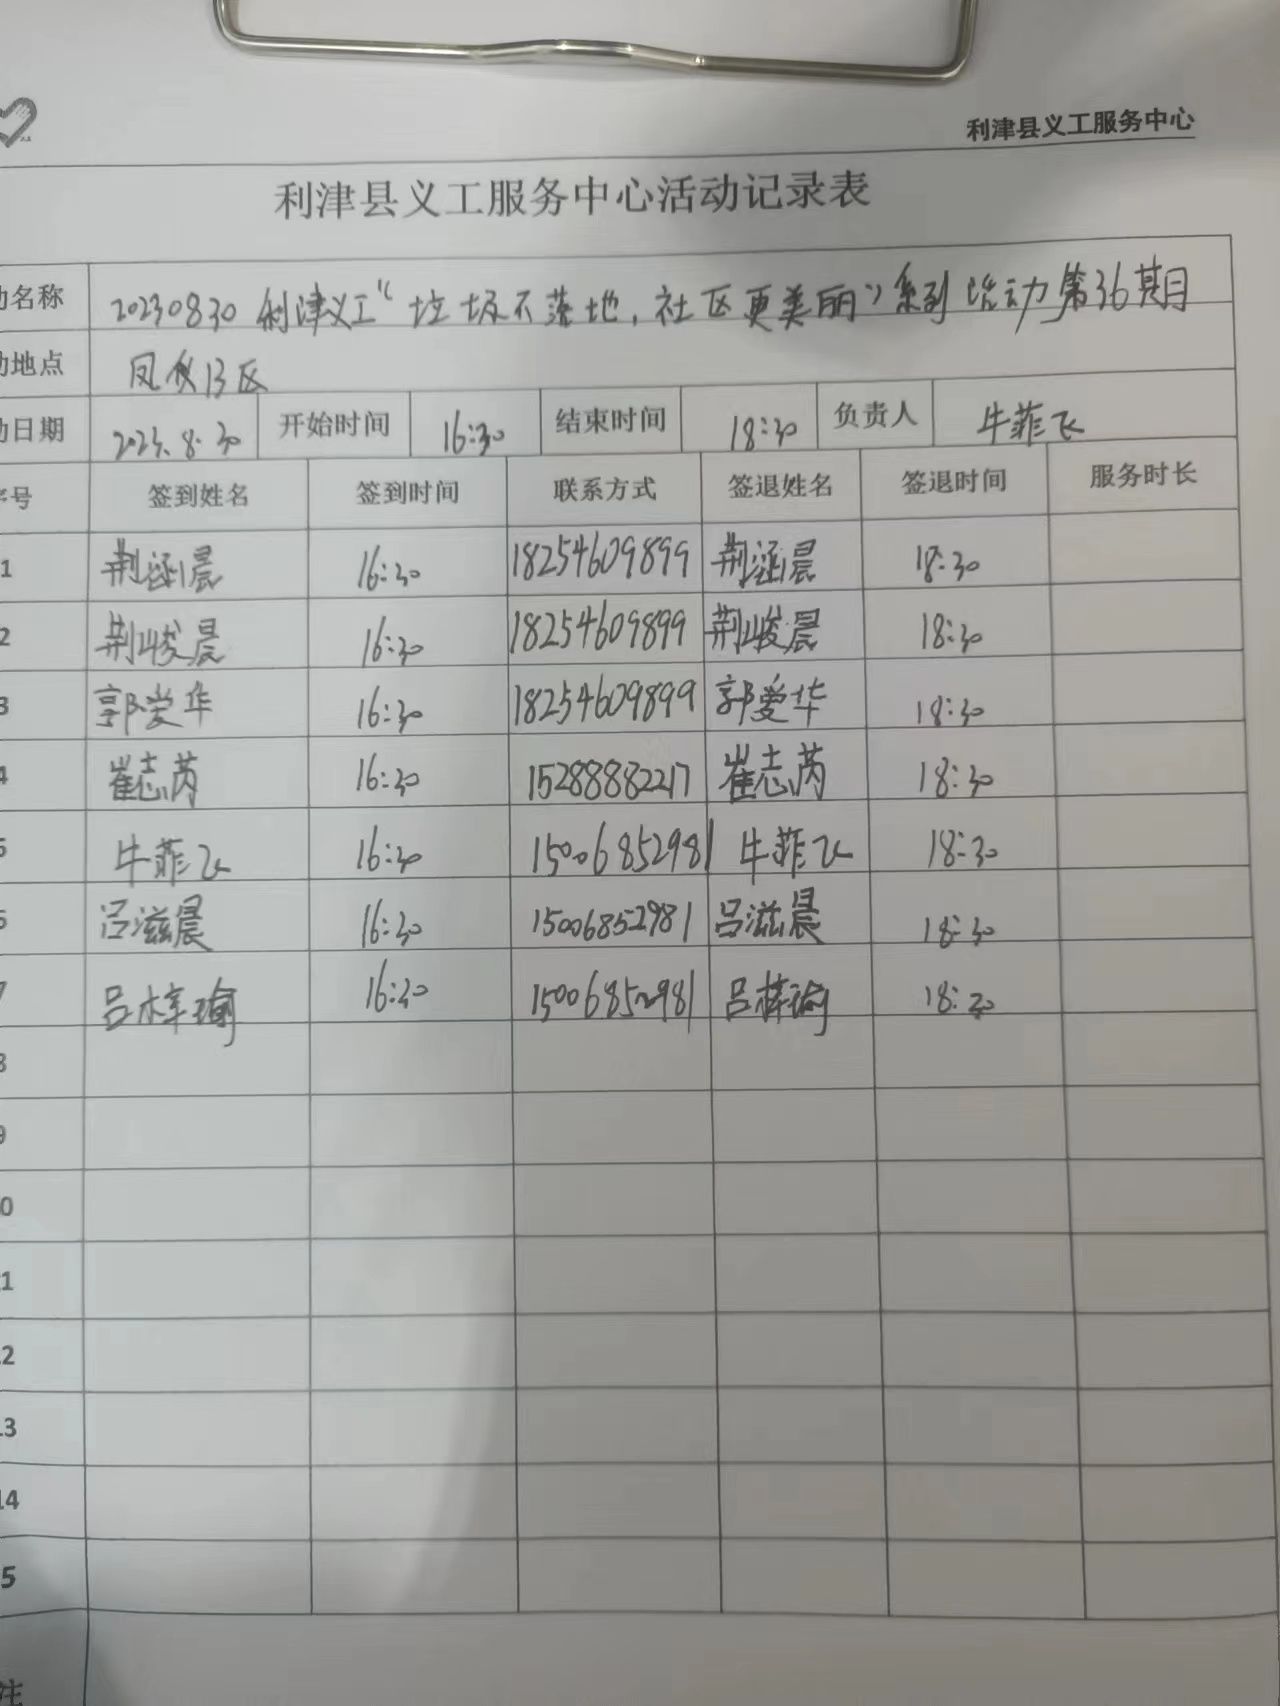 利津县义工服务中心
利津县义工服务中心活动记录表
动名称 20230830利津义工“垃圾不落地,社区更美丽”系列活动第36期目
动地点 凤仪13区
动日期 2023.8.30 开始时间 16:30 结束时间 18:30 负责人 牛菲飞
序号 签到姓名 签到时间 联系方式 签退姓名 签退时间 服务时长
1 荆涵晨 16:30 18254609899 荆涵晨 18:30
2 荆峻晨 16:30 18254609899 荆峻晨 18:30
3 郭爱华 16:30 18254609899 郭爱华 18:30
4 崔志芮 16:30 15288882217 崔志芮 18:30
5 牛菲飞 16:30 15006852981 牛菲飞 18:30
6 吕滋晨 16:30 15006852981 吕滋晨 18:30
7 吕梓瑜 16:30 15006852981 吕梓瑜 18:30
8
9
0
1
2
13
14
5
注